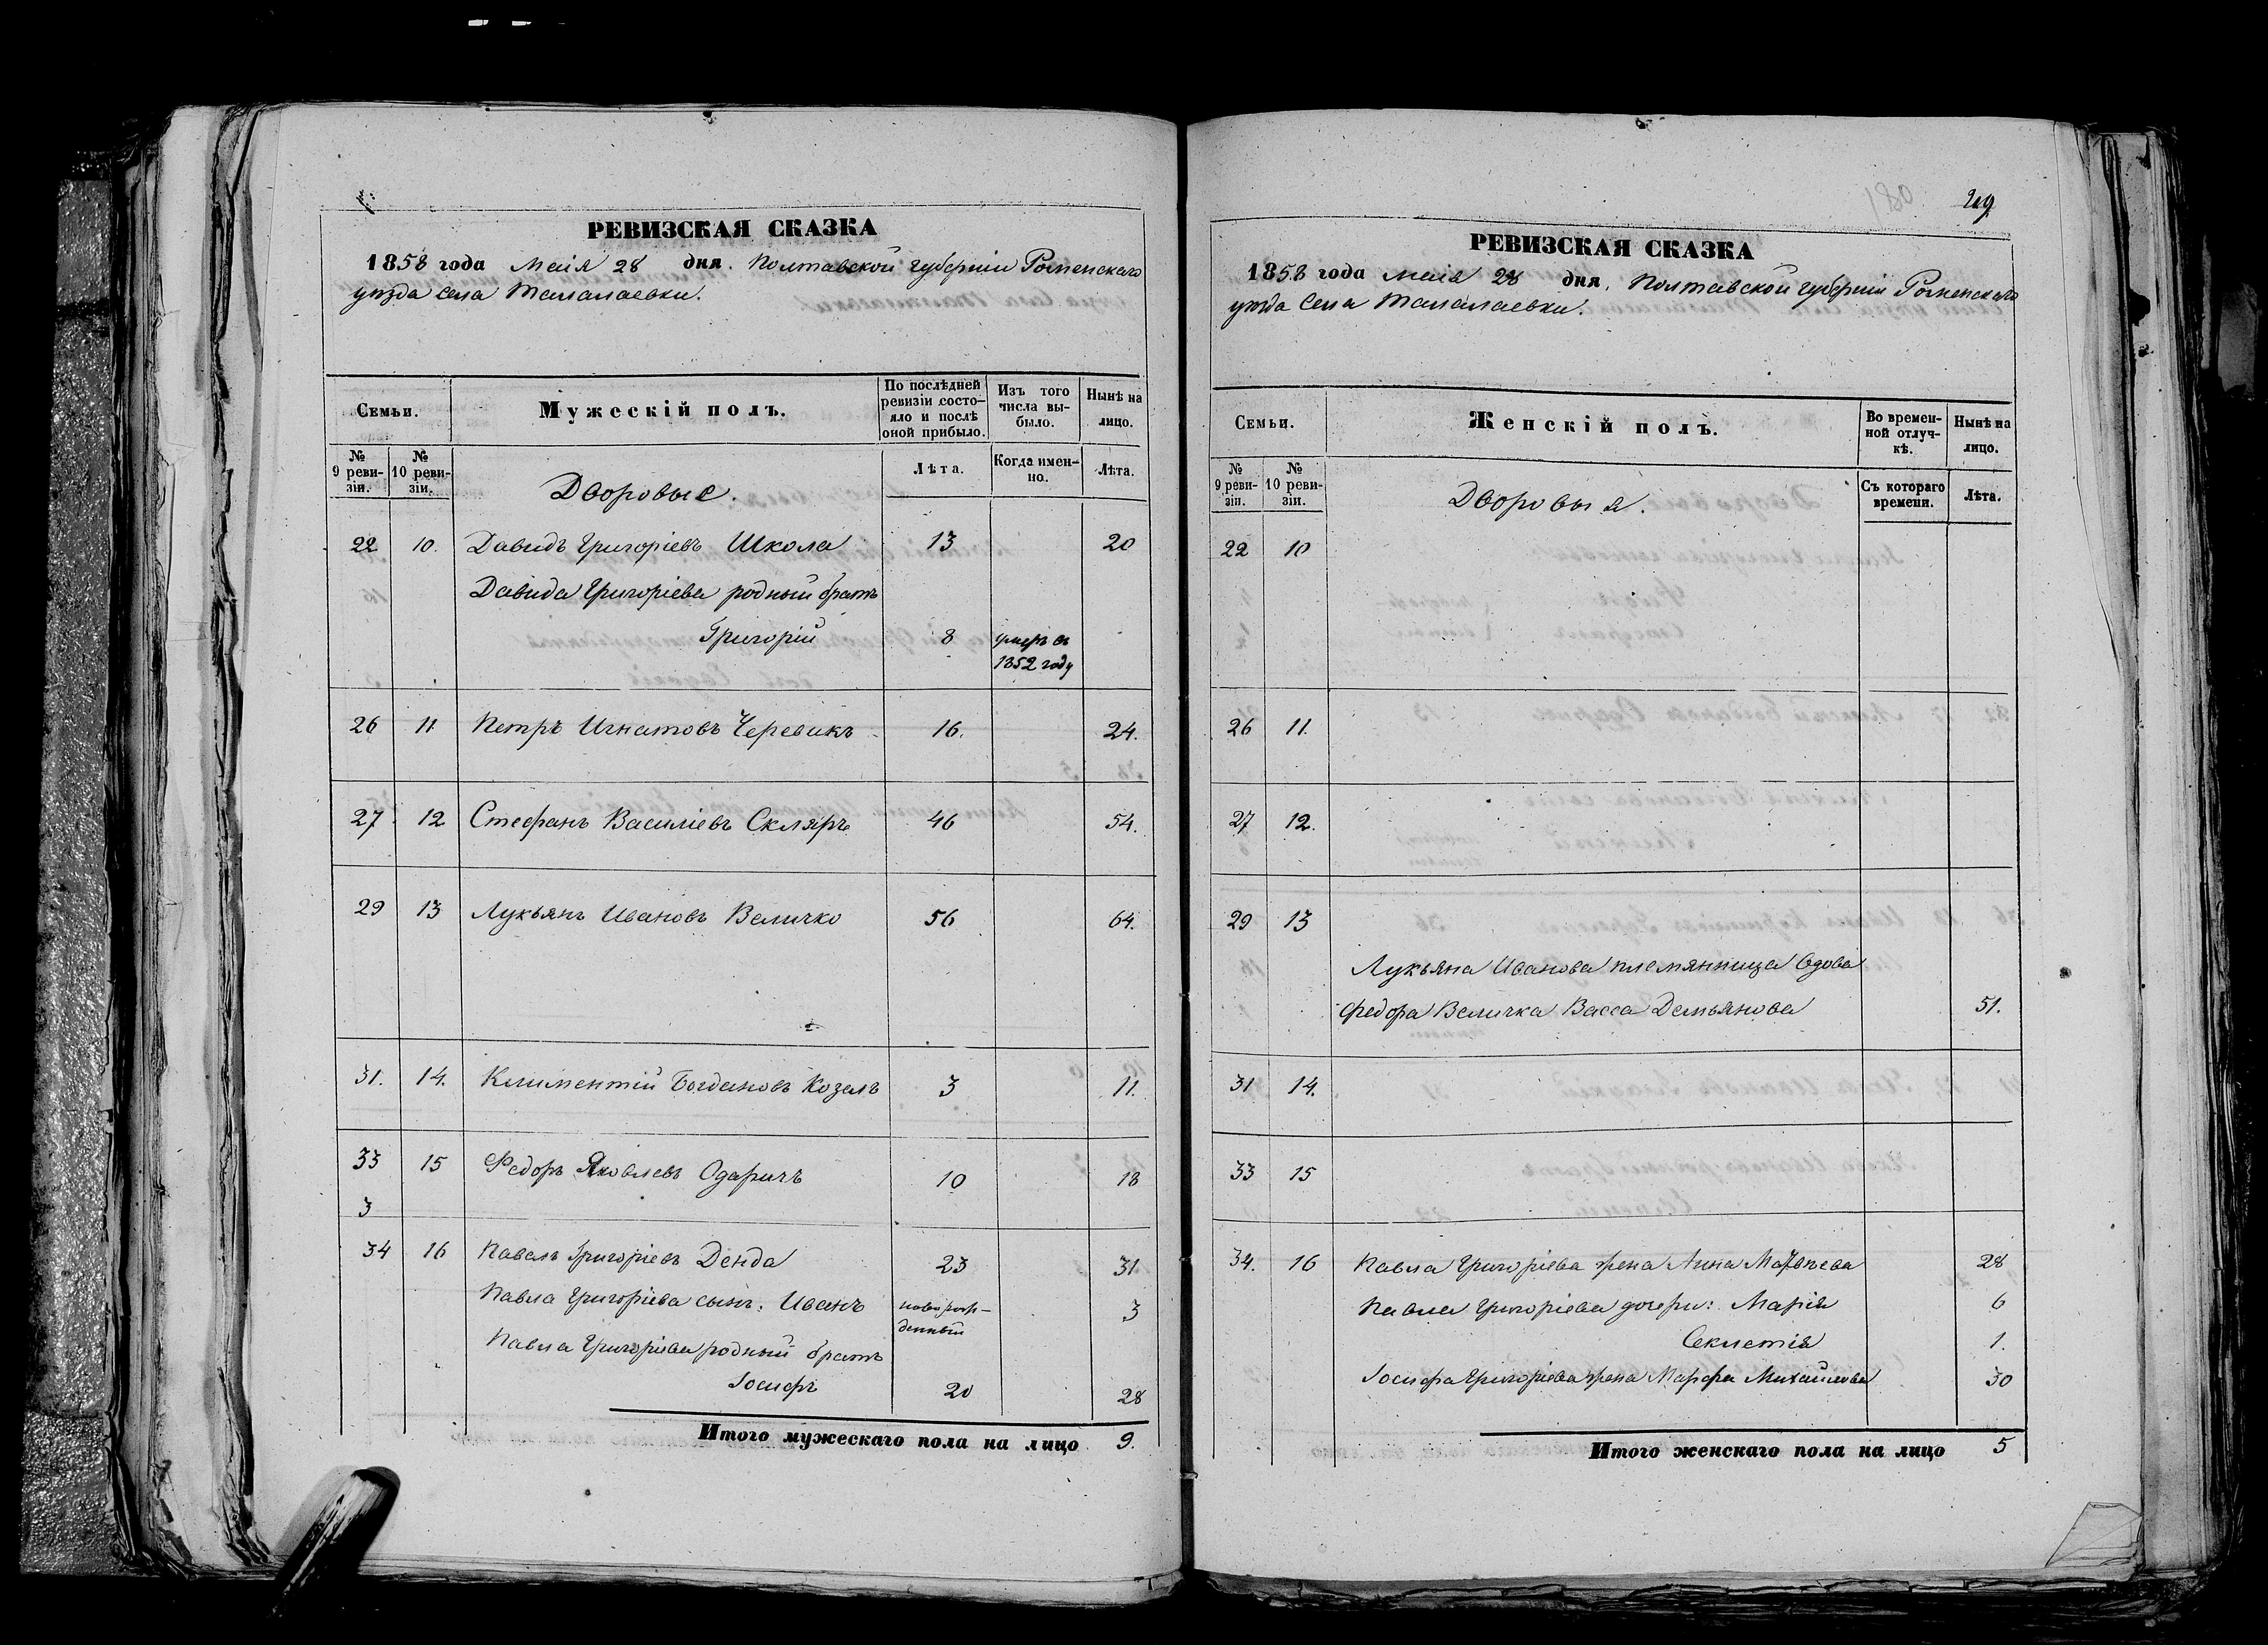 РЕВИЗСКАЯ СКАЗКА
1858 года Маія 28 дня. Полтавской губерніи Роменскаго
уѣзда села Талалаевки.
Семьи.
Мужескій полъ.
По послѣдней ревизіи состояло и послѣ оной прибыло.
Изъ того числа выбыло.
Нынѣ на лицо.
№ 9 ревизіи.
№ 10 ревизіи.
Лѣта.
Когда именно.
Лѣта.
Дворовые.
22 10. Давидъ Григоріевъ Школа 13 20
Давида Григоріева родный братъ
Григорій 8 умеръ въ
1852 году
26 11 Петръ Игнатовъ Черевикъ 16. 24.
27 12 Стефанъ Василіевъ Скляръ 46 54.
29 13 Лукьянъ Ивановъ Величко 56 64.
31. 14. Климентій Богдановъ Козелъ 3 11.
33 15 Федоръ Яковлевъ Одаричъ 10 18
3
34 16 Павелъ Григоріевъ Денда 23 31
Павла Григоріева сынъ: Иванъ новорож-
денный 3
Павла Григоріева родный братъ
Іосифъ 20 28
Итого мужескаго пола на лицо 9.
180
219
РЕВИЗСКАЯ СКАЗКА
1858 года Маія 28 дня, Полтавской губерніи Роменскаго
уѣзда села Талалаевки.
Семьи.
Женскій полъ.
Во временной отлучкѣ.
Нынѣ на лицо.
№ 9 ревизіи.
№ 10 ревизіи.
Съ котораго времени.
Лѣта.
Дворовыя.
22 10
26 11.
27 12.
29 13
Лукьяна Иванова племянница вдова
Федора Величка Васса Демьянова 51.
31 14.
33 15
34. 16 Павла Григоріева жена Анна Матвѣева 28
Павла Григоріева дочери: Марія 6
Секлетія 1.
Іосифа Григоріева жена Марфа Михайлова 30
Итого женскаго пола на лицо 5